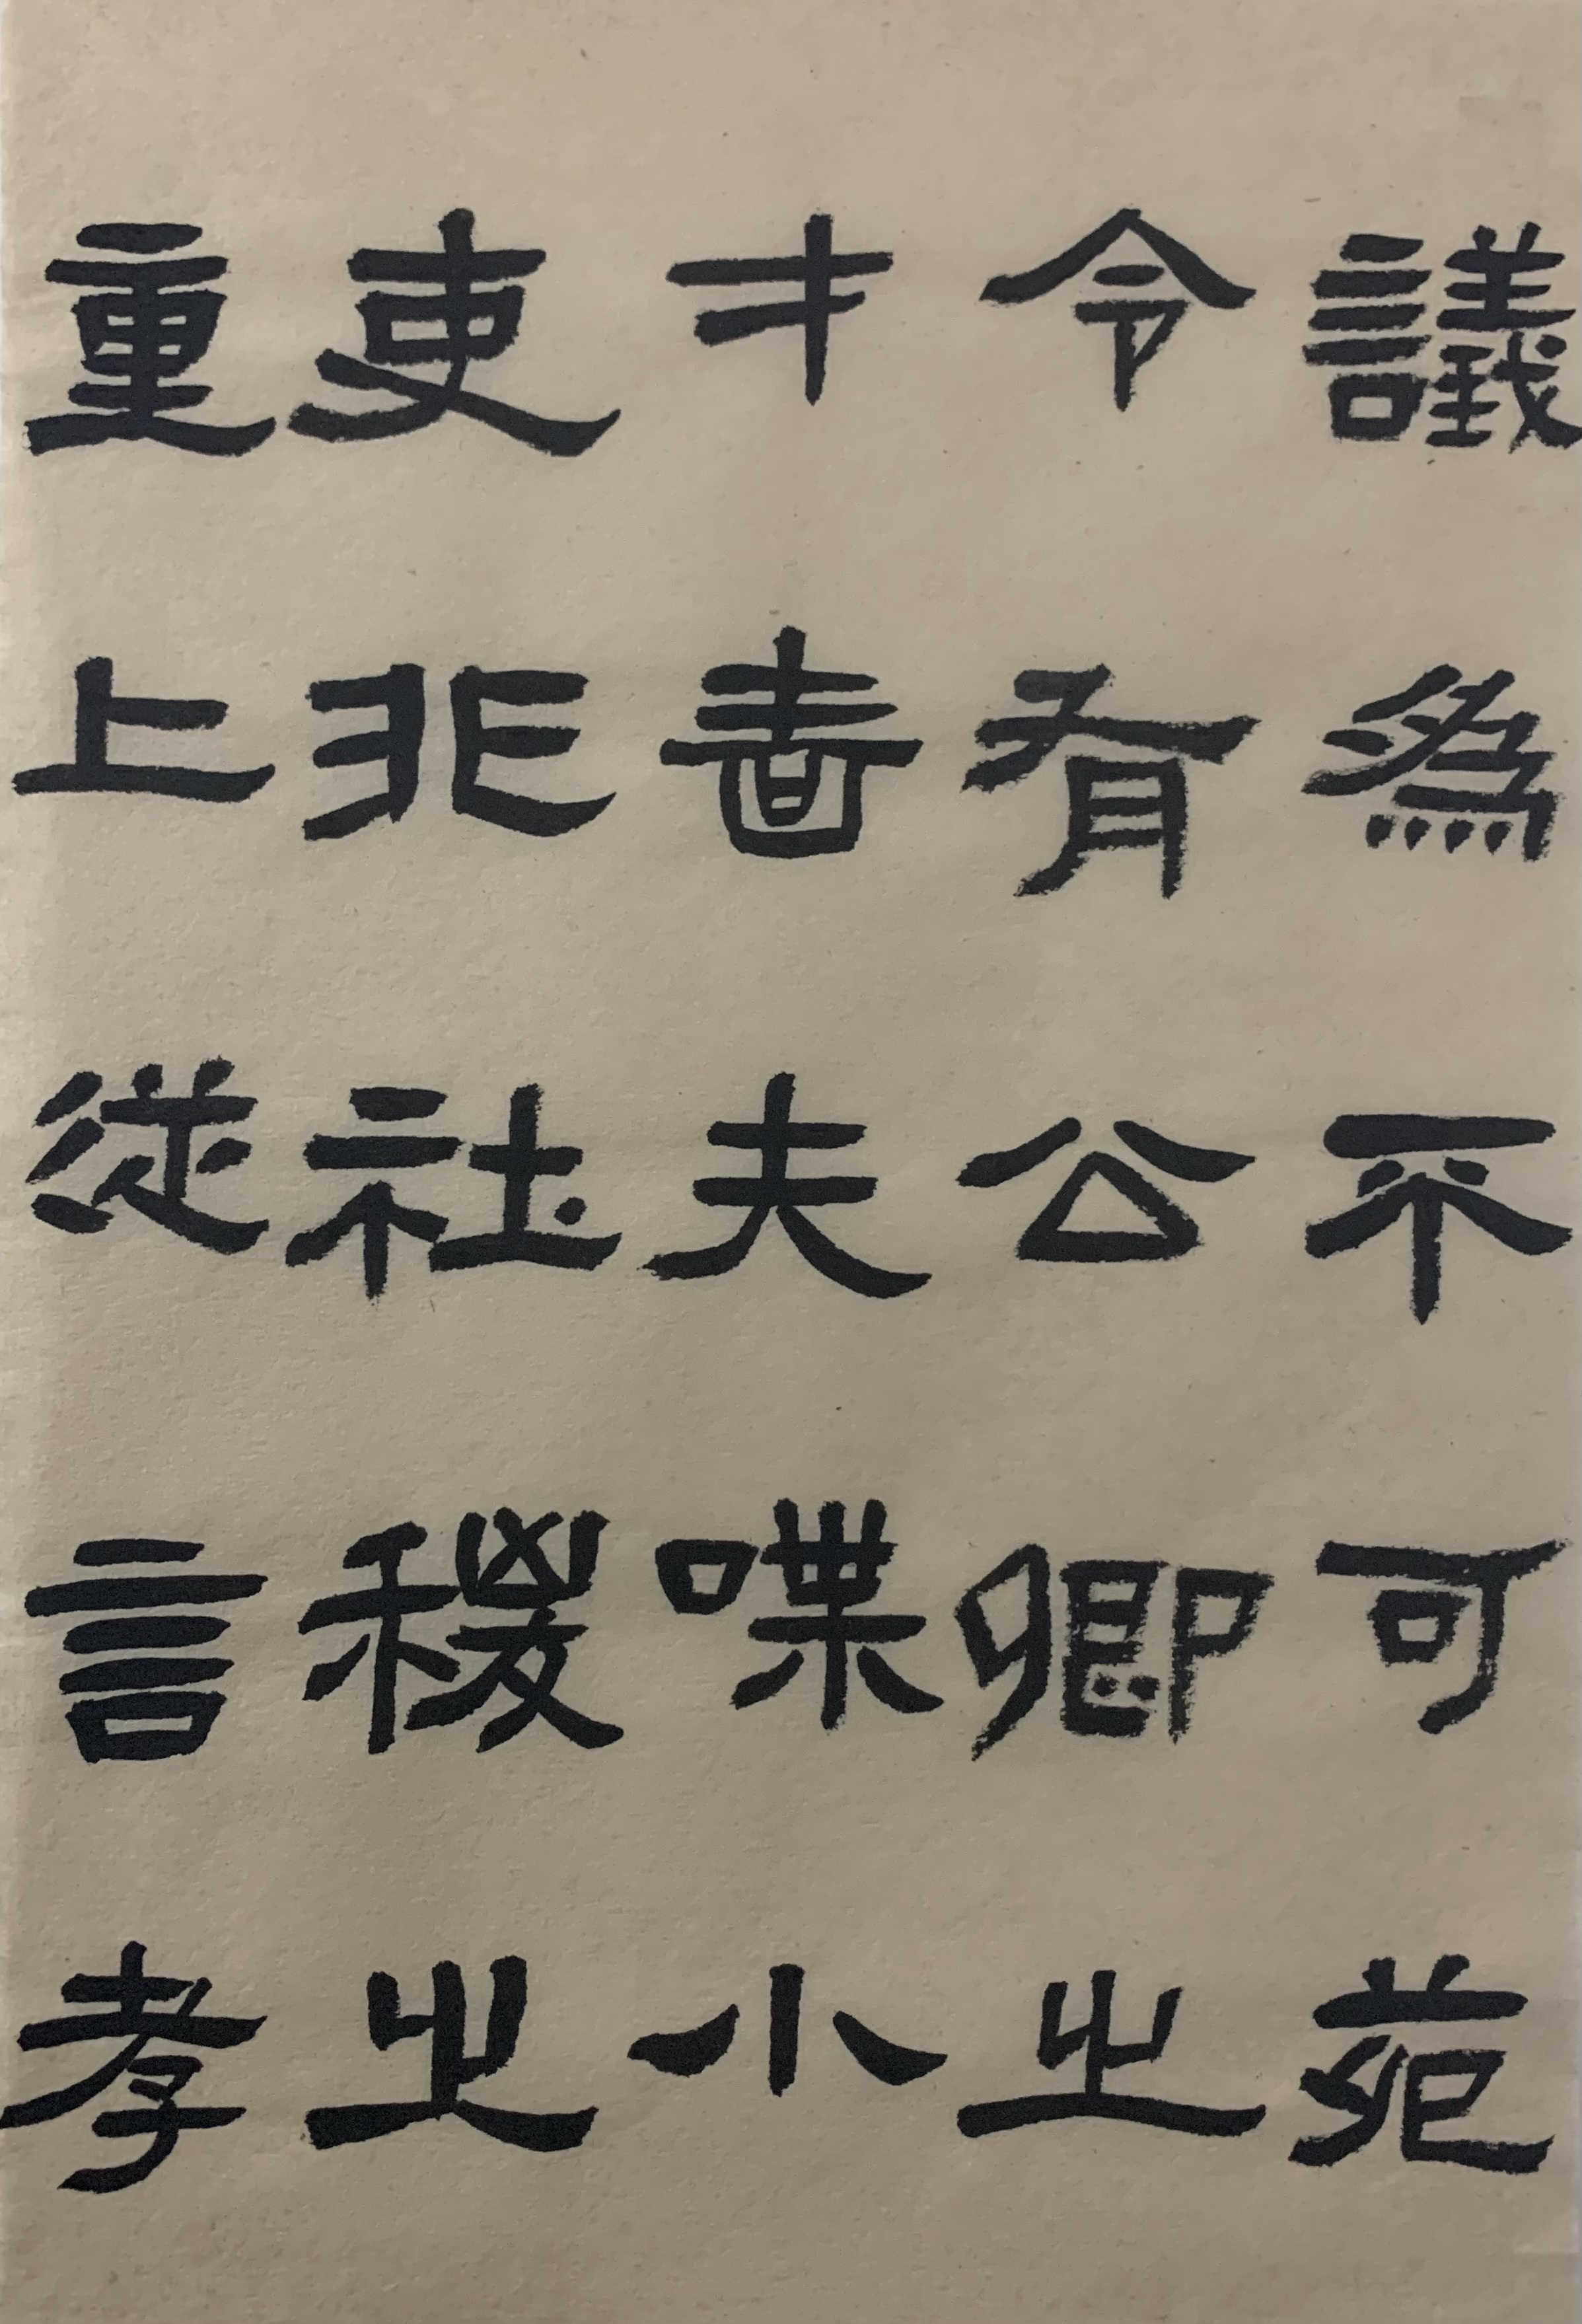 議爲不可苑
令有公卿之
才嗇夫喋小
吏非社稷之
重上從言孝